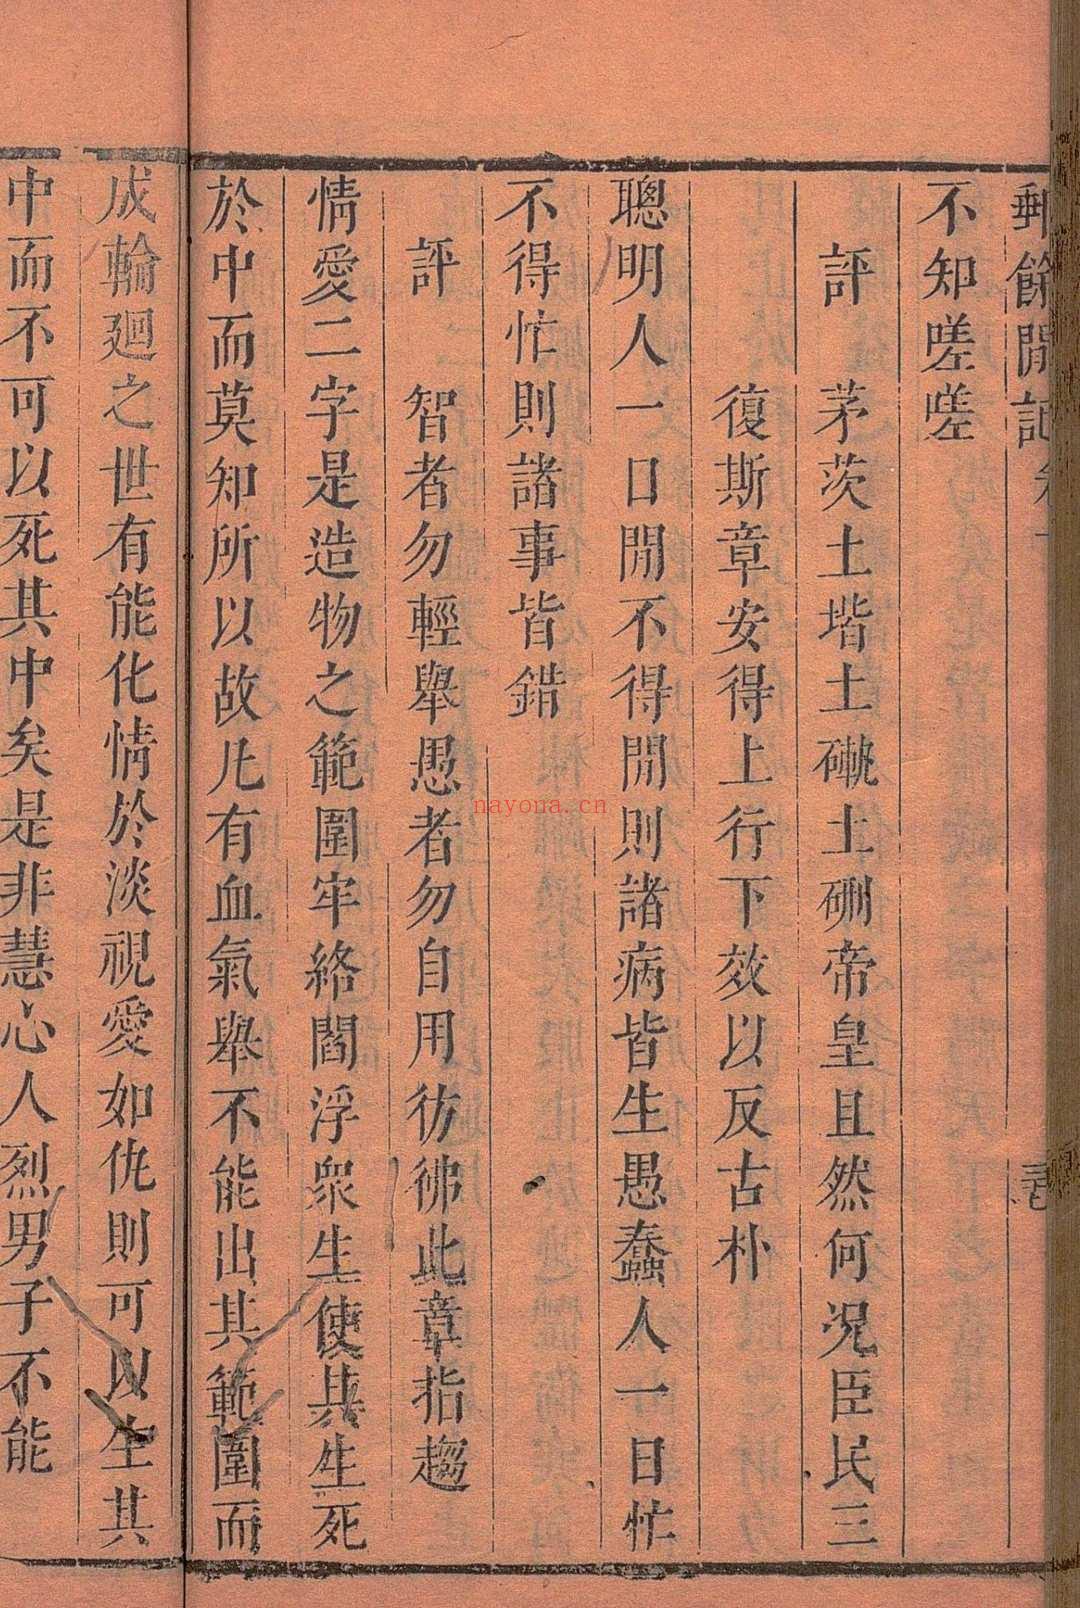 郵餘閒記卷
不知嗟嗟
評　茅茨土堦土硎帝皇且然何况臣民三
復斯章安得上行下效以反古朴
聰明人一口閒不得閒則諸病皆生愚蠢人一日忙
不得忙則諸事皆錯
評　智者勿輕舉愚者勿自用彷彿此章指趨
情愛二字是造物之範圍牢絡閻浮衆生使其生死
於中而莫知所以故凡有血氣舉不能出其範圍而
成輪廻之世有能化情於淡視愛如仇則可以生其
中而不可以死其中矣是非慧心人烈男子不能
nayona.cn